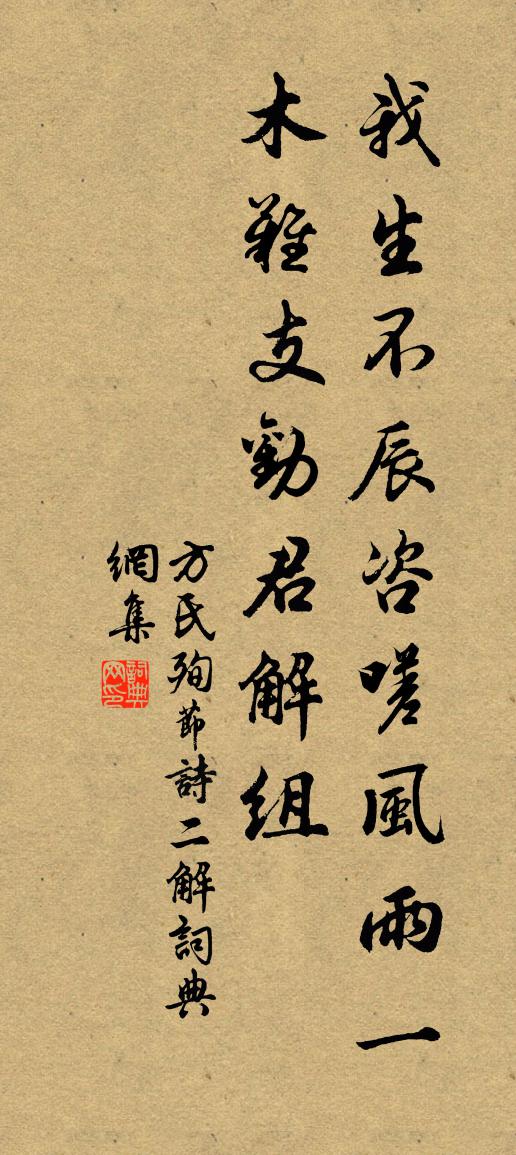 我生不辰咨嗟風雨一
木難支勸君解組
方氏殉節詩二解詞典
網集
詞典
网印